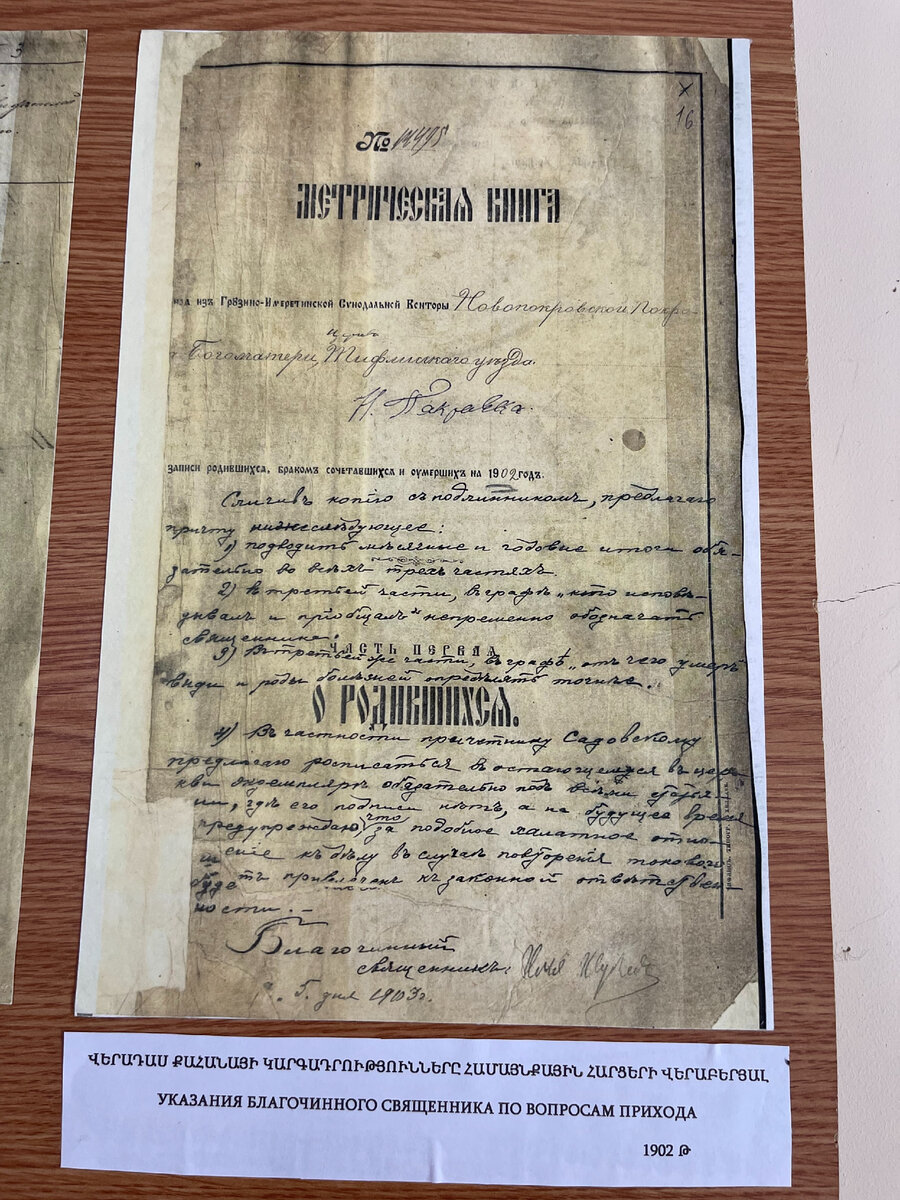 3
х
16
№ 14495
МЕТРИЧЕСКАЯ КНИГА
изъ Грузино-Имеретинской Сѵнодальной Конторы Новопокровской Покро-
церкви
Богоматери, Тифлисскаго уѣзда
записи родившихся, бракомъ сочетавшихся и оумершихъ на 1902 годъ.
Сличивъ копію съ подлинникомъ, предлагаю
причту нижеслѣдующее:
1) подводить мѣсячные и годовые итоги обя-
зательно во всѣхъ трехъ частяхъ.
2) въ третьей части, въ графѣ „кто исповѣ-
дывалъ и пріобщалъ" непременно обозначать
священника.
ЧАСТЬ ПЕРВАЯ
3) Въ третьей же части, въ графѣ „отъ чего умеръ"
виды и роды болѣзней опредѣлять точнѣе.
О РОДИВШИХСЯ.
4) Въ частности причетнику Садовскому
предлагаю росписаться въ остающемся въ цер-
кви экземплярѣ обязательно подъ всѣми статья
ми, гдѣ его подписи нѣтъ, а на будущее время
предупреждаю, что за подобное халатное отно-
ш еніе къ дѣлу въ случаѣ повторенія токового
буде тъ привлеченъ къ законной отвѣтствен
ности.-
Благочинный
священникъ:
1903 г.
ՎԵՐԱԴԱՍ ՔԱՀԱՆԱՅԻ ԿԱՐԳԱԴՐՈՒԹՅՈՒՆՆԵՐԸ ՀԱՄԱՅՆՔԱՅԻՆ ՀԱՐՑԵՐԻ ՎԵՐԱԲԵՐՅԱԼ
УКАЗАНИЯ БЛАГОЧИННОГО СВЯЩЕННИКА ПО ВОПРОСАМ ПРИХОДА
1902 Թ